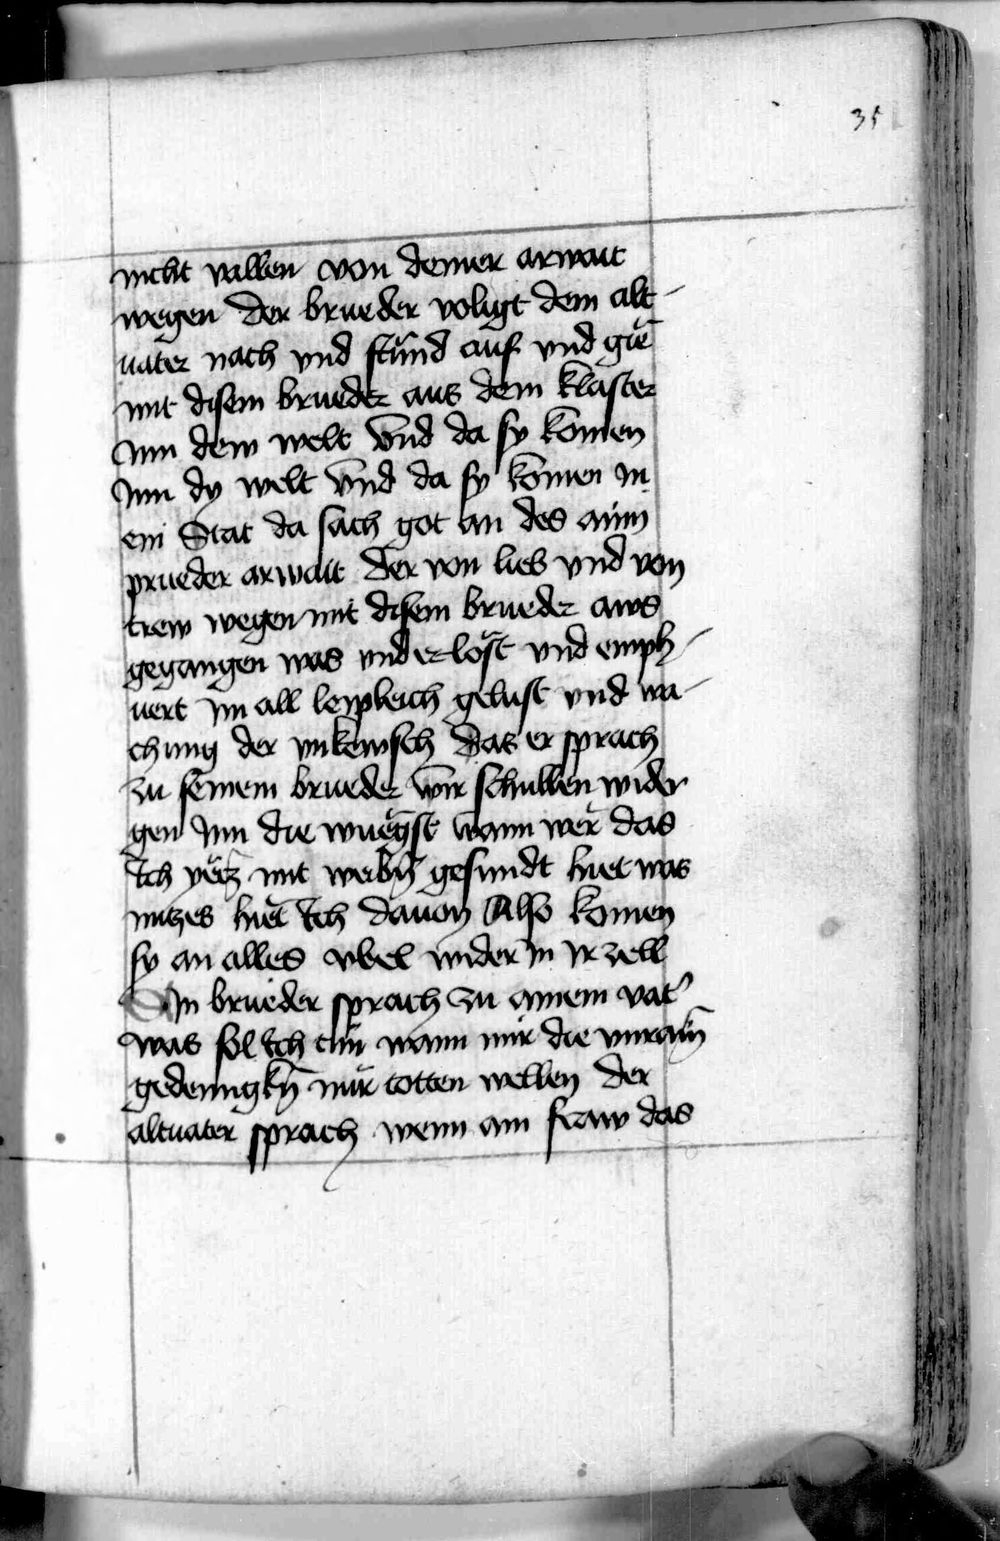 35
nicht vallen von deiner arwait
wegen der brueder voligt dem alt-
uater nach vnd stůnd auf vnd gie
mit disem brueder aus dem klaster
Inn dew welt Vnd da sy komen
Inn dy welt Vnd da sy komen in
ein Stat da sach got an des ainn
prueder arwait der von lieb vnd von
trew wegen mit disem brueder aws
gegangen was vnd erlöst vnd emph-
uert im all leipleich gelust vnd ra-
chung der vnkewsch das er sprach
zu seinem brueder wir schullen wider
gen Inn die wuegst wann wer das
Ich yetz mit weibn gesundt hiet was
nutzes hiet Ich dauon Also komen
sy an alles vbel wider in ir zell
Ain brueder sprach zu ainem vat'
was sol Ich tun wann mir die vnrain
gedenngkn mir totten wellen der
altuater sprach wenn ain fraw das